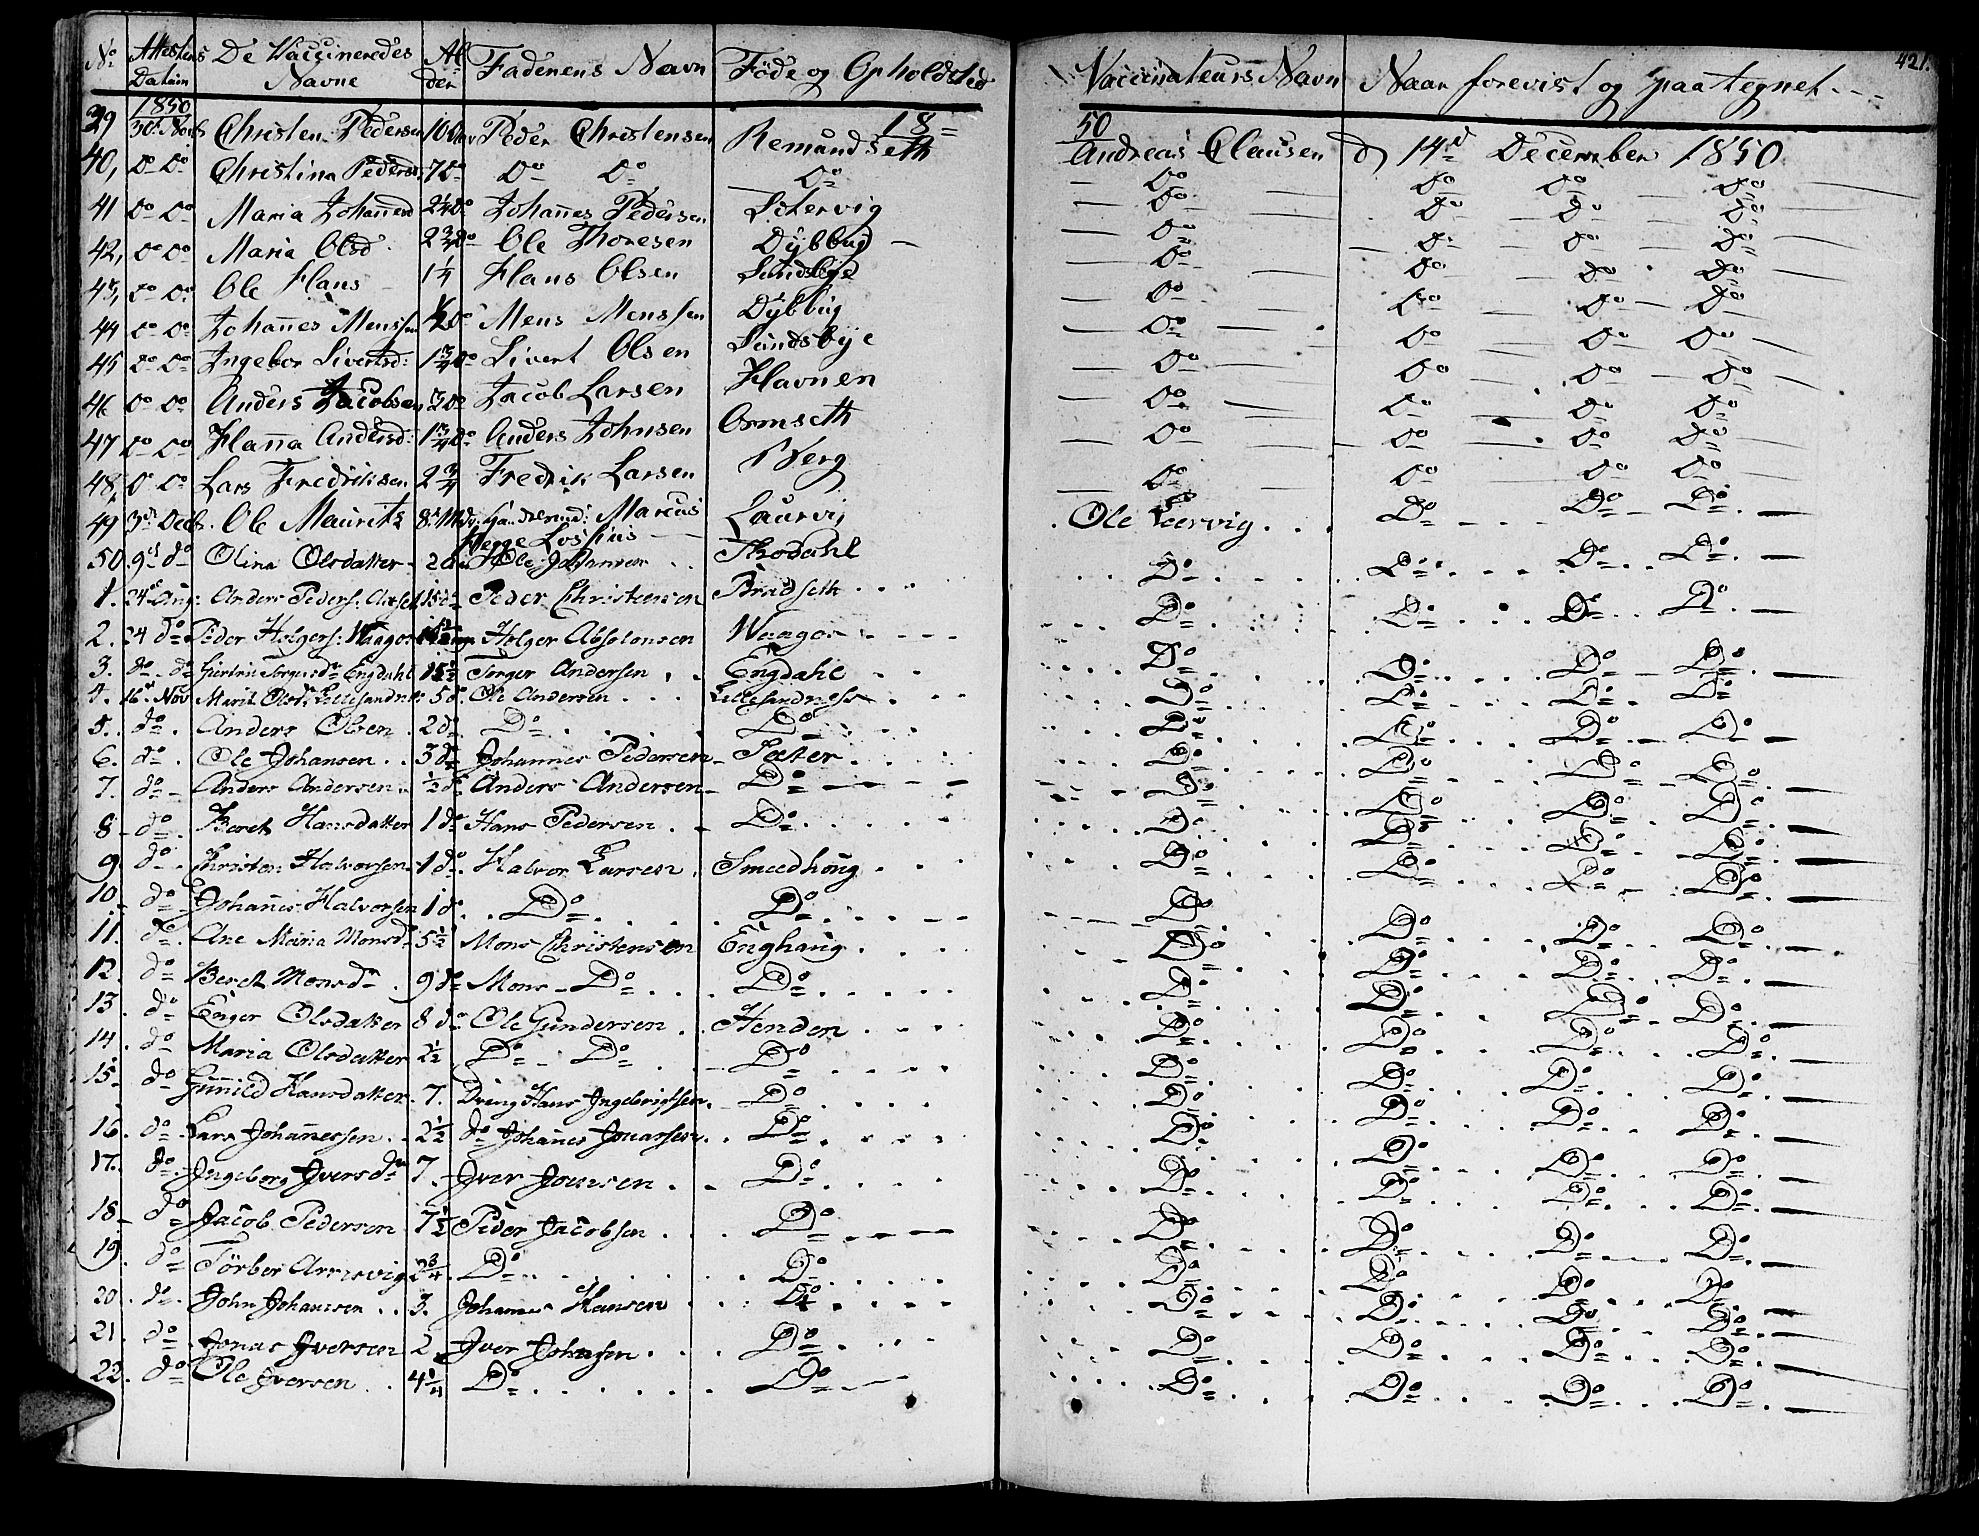 421.
No Attestens Datum De Vaccineredes Navne Alder Faderens Navn Föde og Opholdsted Vaccinateurs Navn Naar forevist og paategnet
1850 18 = 50
39 30t Novb Christen Pedersen 10 Peder Christensen Remundseth Andreas Clausen d 14d December 1850
40, do do Christina Pedersd. 7 do Do Do Do Do Do Do Do
41 do do Maria Johansd 2¼ do Johañes Pedersen Do Do Do Do
42, do do Maria Olsd 2¾ do Ole Thoresen Dybbug Do Do Do Do
43, do do Ole Hans 1¼ Hans Olsen Sundsbye Do Do Do Do
44 do do Johañes Menssen ½ do Mens Menssen Dybbug Do Do Do Do
45 do do Ingebor Sivertsd: 1¾ do Sivert Olsen Sundsbye Do Do Do Do
46 do do Anders Jacobsen 3 do Jacob Larsen Havnen Do Do Do Do
47 do do Hañna Andersd: 1¾ do Anders Johnsen Ormseth Do Do Do Do
48, do do Lars Fredriksen 2¾ Fredrik Larsen Berg Do Do Do Do
49 3d Decb. Ole Mauritz 8 Marcus Laurvig Ole Leervig Do Do Do
50. 9d do Olina Olsdatter 2 Ole Johansen Thodahl Do Do Do Do
1. 24 Aug: Anders Peders: 15 do Peder Christensen Bradseth Do Do Do Do
2. 24 do Peder Holgers: Waagos Holger Absolonsen Waagos Do Do Do Do
3. do do Torgersdr Engdahl 15½ Torger Andersen Engdahl Do Do Do Do
4. 16d Nov Marit Olsdr Lillesandnes 5 do Ole Andersen Lillesandness Do Do Do Do
5. do Anders Olsen 2 do Do Do Do Do Do Do
6. do Ole Johansen 3 do Johannes Pedersen Sæter Do Do Do Do
7. do Anders Andersen ½ do Anders Andersen Do Do Do Do Do
8 do Beret Hansdatter 1 do Hans Pedersen Do Do Do Do Do
9 do Christen Halvorsen 1 do Halvor Larsen Smedhoug Do Do Do Do
10 do Johañes Halvorsen 1 do Do Do Do Do Do Do
11. do Ane Maria Monsd. 5½ Mons Christensen Enghaug Do Do Do Do
12. do Beret Monsdr 9 do Mons Do Do Do Do Do Do
13. do Enger Olsdatter 8 do Ole Gundersen Henden Do Do Do Do
14. do Maria Olsdatter 2½ Do Do Do Do Do Do Do
15. do Guñild Hansdatter 7. Dreng Hans Ingebrigtsen Do Do Do Do Do
16. do Lars Johañessen 2½ do Johañes Do Do Do Do Do
17. do Ingeborg Iversdr 7 Iver Do Do Do Do Do
18 do Jacob Pedersen 7½ Peder Jacobsen Do Do Do Do Do
19. do Törber 2¾ Do Do Do Do Do Do
20. do John Johansen 3. Johannes Hansen Do Do Do Do Do
21. do Jonas Iversen 2 Iver Johnsen Do Do Do Do Do
22. do Ole Iversen 4¼ Do Do Do Do Do Do